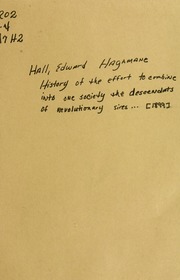 202
-4
17H2
Hall, Edward Hagamane
History of the effort to combine
into one society the descendants
of revolutionary sires... [1899]